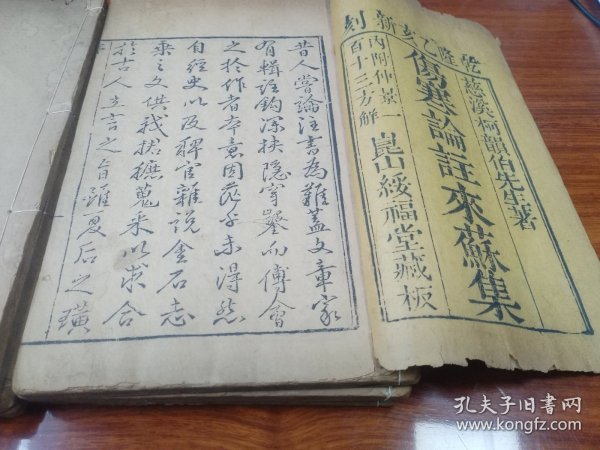 乾隆乙亥新刻
慈溪柯韻伯先生著
傷寒論註來蘇集
内附仲景一
百十三方解
崑山綏福堂藏板
昔人嘗論注書為難蓋文章家
有輯注鈎深抉隱穿鑿而傅會
之於作者本意固茫乎未得然
自經史以及稗官雜說金石志
乘之文供我捃摭蒐采以求合
於古人立言之旨雖夏后之璜
孔夫子旧书网
kongfz.com